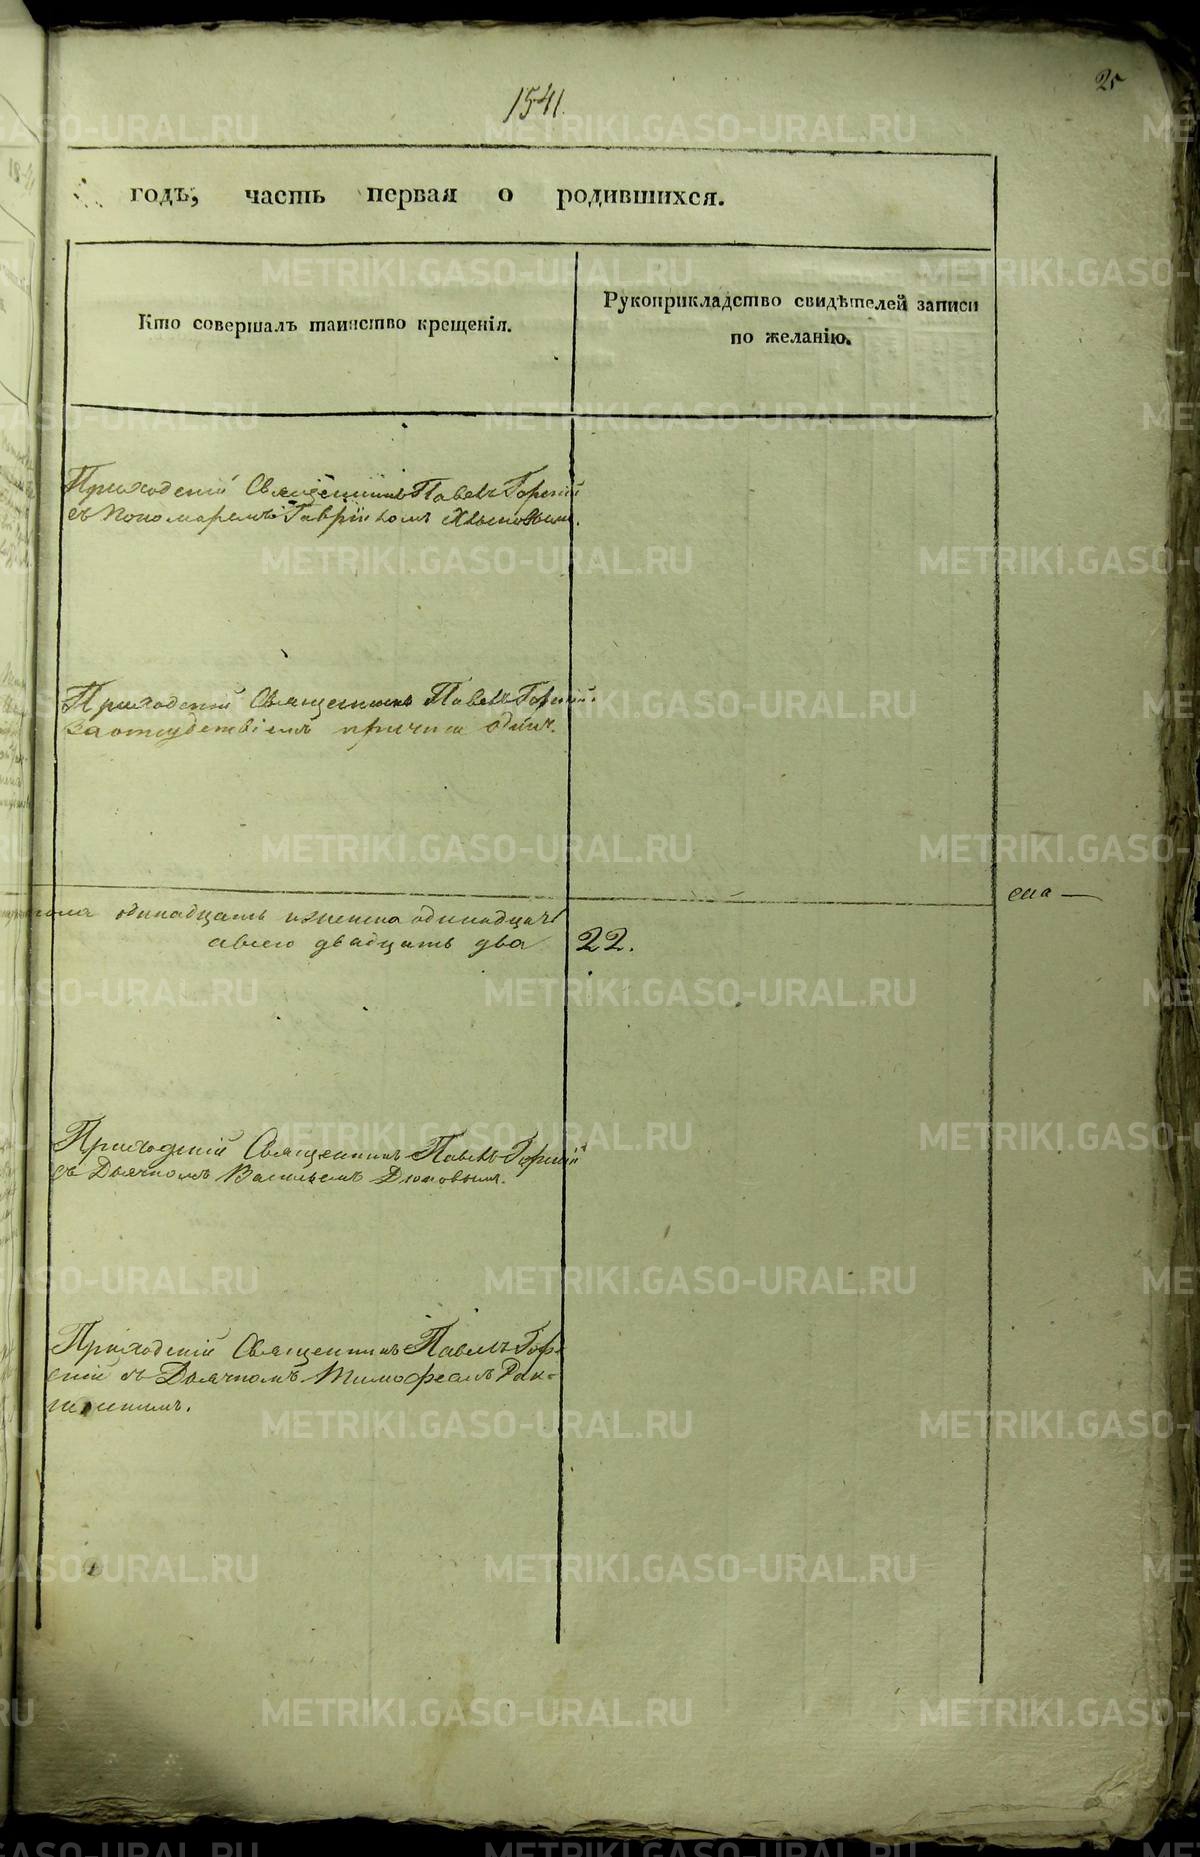 25
1541.
годъ, часть первая о родившихся.
Кто совершалъ таинство крещенія.
Рукоприкладство свидѣтелей записи
по желанію.
Приходскій Священникъ Павелъ Горскій
съ Пономаремъ Гаврііломъ Хлыновымъ.
Приходскій Священникъ Павелъ Горскій
за отсудствіемъ причта одинъ.
пола одинадцать и женска одинадцать
а всего двадцать два 22.
Приходскій Священникъ Павелъ Горскій
съ Дьячкомъ Васильемъ
Приходскій Священникъ Павелъ Гор-
скій съ Дьячкомъ Тимофеемъ
METRIKI.GASO-URAL.RU